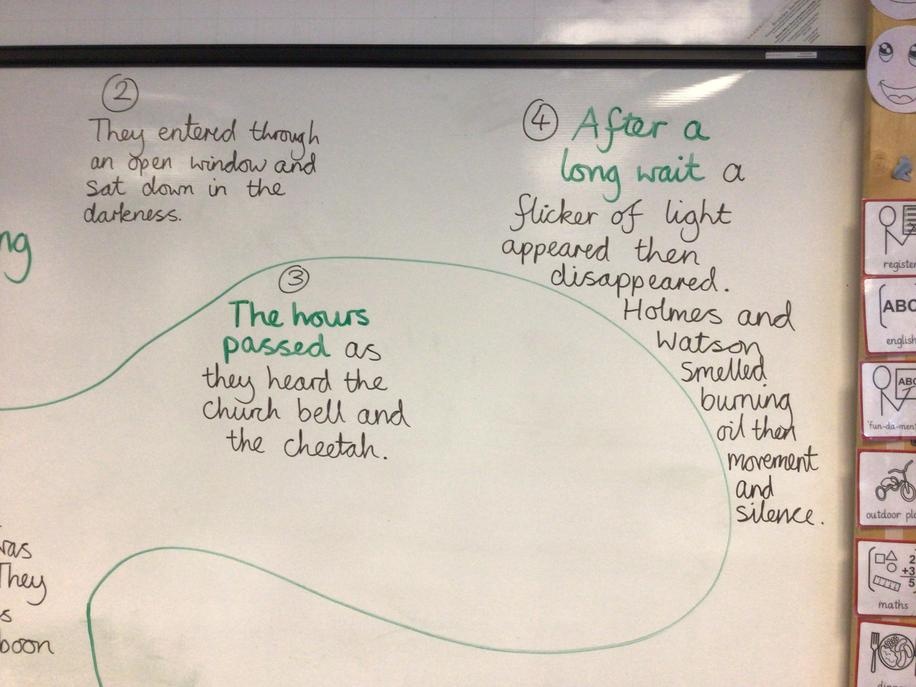 ②
They entered through
an open window and
sat down in the
darkness.
ng
③
The hours
passed as
they heard the
church bell and
the cheetah.
④ After a
long wait a
flicker of light
appeared then
disappeared.
Holmes and
Watson
smelled
burning
oil then
movement
and
silence.
They
boon
register
ABC
english
ABC
outdoor pl
2
+3
5
maths